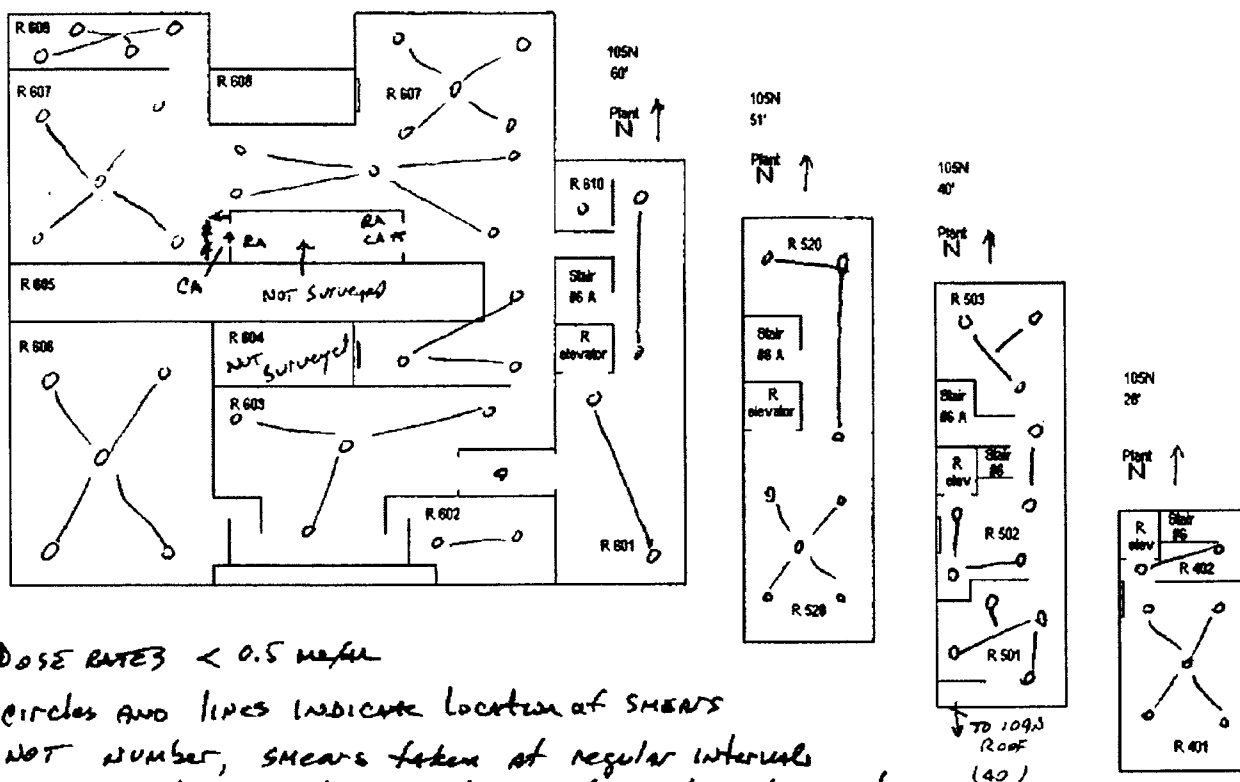 R 609
R 607
R 608
R 607
105N
60'
Plant
N
R 610
RA
RA
CA
CA
NOT Surveyed
R 605
Stair
#6 A
R 606
R 604
NOT Surveyed
R
elevator
R 603
R 602
R 601
105N
51'
Plant
N
R 520
Stair
#6 A
R
elevator
R 528
105N
40'
Plant
N
R 503
Stair
#6 A
R
elev
Stair
#6
R 502
R 501
TO 109N
ROOF
(40)
105N
28'
Plant
N
R
elev
Stair
#6
R 402
R 401
DOSE RATES < 0.5
circles AND lines INDICATE location of SMEARS
NOT Number, SMEARS taken at regular intervals